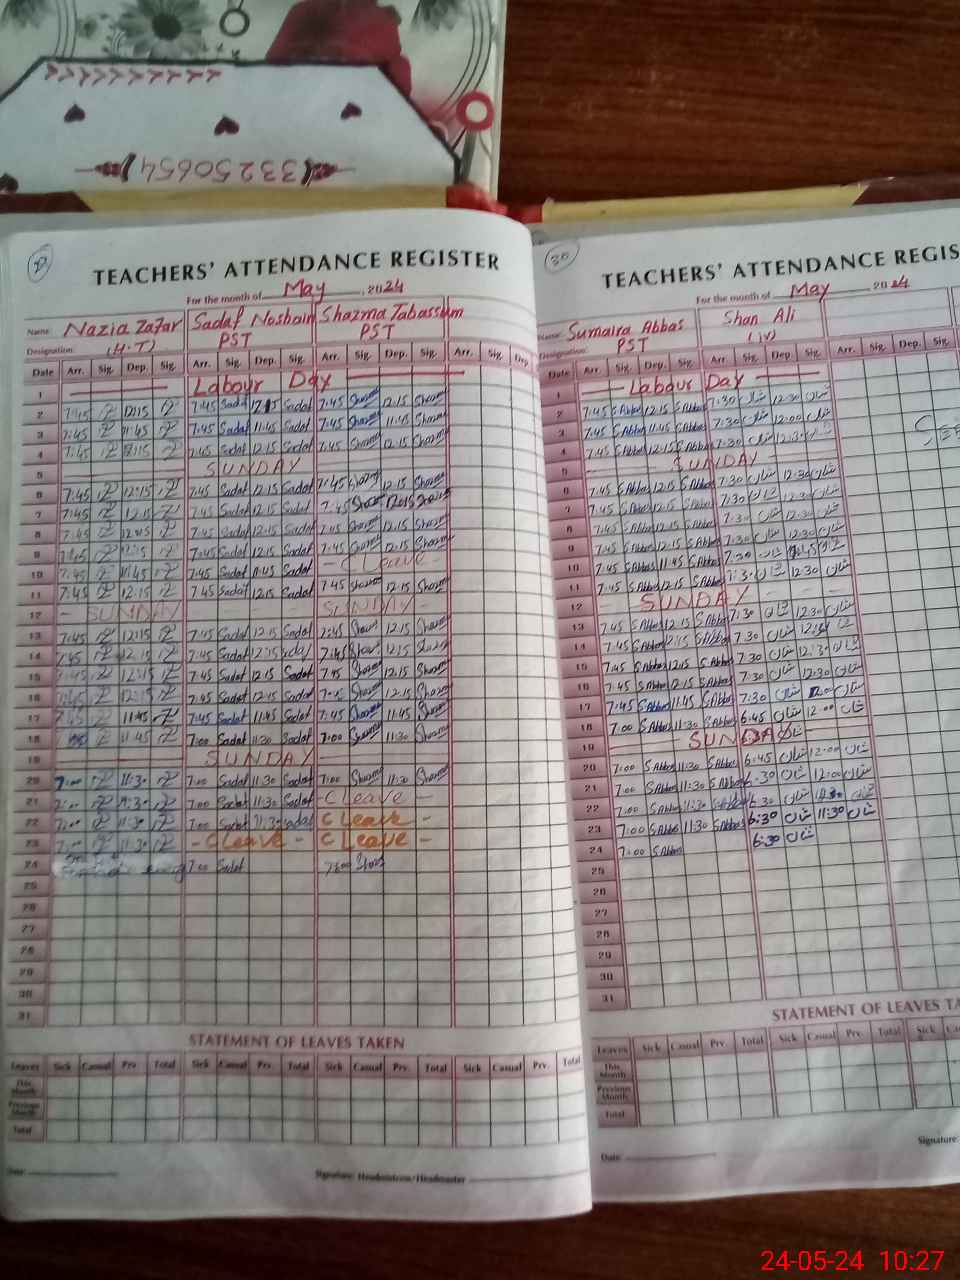 33250654
TEACHERS' ATTENDANCE REGISTER
For the month of May, 2024
Name: Nazia Zafar Sadaf Noshain Shazma Tabassum
Designation: (H.T) PST PST
Date Arr. Sig. Dep. Sig. Arr. Sig. Dep. Sig. Arr. Sig. Dep. Sig. Arr. Sig. Dep
1 Labour Day
2 7:45 12:15 7:45 Sadaf 12:15 Sadaf 7:45 Shazma 12:15 Shazma
3 7:45 11:45 7:45 Sadaf 11:45 Sadaf 7:45 Shazma 11:45 Shazma
4 7:45 12:15 7:45 Sadaf 12:15 Sadaf 7:45 Shazma 12:15 Shazma
5 SUNDAY
6 7:45 12:15 7:45 Sadaf 12:15 Sadaf 7:45 Shazma 12:15 Shazma
7 7:45 12:15 7:45 Sadaf 12:15 Sadaf 7:45 Shazma 12:15 Shazma
8 7:45 7:45 Sadaf 12:15 Sadaf 7:45 Shazma 12:15 Shazma
9 7:45 12:15 7:45 Sadaf 12:15 Sadaf 7:45 Shazma 12:15 Shazma
10 7:45 11:45 7:45 Sadaf 11:45 Sadaf - C Leave -
11 7:45 12:15 7:45 Sadaf 12:15 Sadaf 7:45 Shazma 12:15 Shazma
12 - SUNDAY - SUNDAY -
13 7:45 12:15 7:45 Sadaf 12:15 Sadaf 7:45 Shazma 12:15 Shazma
14 7:45 12:15 7:45 Sadaf 12:15 Sadaf 7:45 Shazma 12:15 Shazma
15 7:45 12:15 7:45 Sadaf 12:15 Sadaf 7:45 Shazma 12:15 Shazma
16 7:45 12:15 7:45 Sadaf 12:15 Sadaf 7:45 Shazma 12:15 Shazma
17 7:45 11:45 7:45 Sadaf 11:45 Sadaf 7:45 Shazma 11:45 Shazma
18 11:45 7:00 Sadaf 11:30 Sadaf 7:00 Shazma 11:30 Shazma
19 SUNDAY
20 7:00 11:30 7:00 Sadaf 11:30 Sadaf 7:00 Shazma 11:30 Shazma
21 7:00 11:30 7:00 Sadaf 11:30 Sadaf - C Leave
22 7:00 11:30 7:00 Sadaf 11:30 Sadaf C Leave -
23 7:00 11:30 - C Leave - C Leave -
24 7:00 Sadaf 7:00 Shazma
25
26
27
28
29
30
31
STATEMENT OF LEAVES TAKEN
Leaves Sick Casual Prv. Total Sick Casual Prv. Total Sick Casual Prv. Total Sick Casual Prv. Total
This Month
Previous Month
Total
Date: Signature: Headmistress/Headmaster
30
TEACHERS' ATTENDANCE REGIS
For the month of May 2024
Name: Sumaira Abbas Shan Ali
Designation: PST (iv)
Date Arr. Sig. Dep. Sig. Arr. Sig. Dep Sig. Arr. Sig. Dep. Sig.
1 Labour Day
2 7:45 S Abbas 12:15 S Abbas 7:30 شان 12:30 شان
3 7:45 S Abbas 11:45 S Abbas 7:30 شان 12:00 شان
4 7:45 S Abbas 12:15 S Abbas 7:30 شان 12:30 شان
5 SUNDAY
6 7:45 S Abbas 12:15 S Abbas 7:30 شان 12:30 شان
7 7:45 S Abbas 12:15 S Abbas 7:30 شان 12:30 شان
8 7:45 S Abbas 12:15 S Abbas 7:30 شان 12:30 شان
9 7:45 S Abbas 12:15 S Abbas 7:30 شان 12:30 شان
10 7:45 S Abbas 11:45 S Abbas 7:30 شان شان
11 7:45 S Abbas 12:15 S Abbas 7:30 شان 12:30 شان
12 SUNDAY
13 7:45 S Abbas 12:15 S Abbas 7:30 شان 12:30 شان
14 7:45 S Abbas 12:15 S Abbas 7:30 شان شان
15 7:45 S Abbas 12:15 S Abbas 7:30 شان 12:30 شان
16 7:45 S Abbas 12:15 S Abbas 7:30 شان 12:30 شان
17 7:45 S Abbas 11:45 S Abbas 7:30 شان 12:00 شان
18 7:00 S Abbas 11:30 S Abbas 6:45 شان 12:00 شان
19 SUNDAY
20 7:00 S Abbas 11:30 S Abbas 6:45 شان 12:00 شان
21 7:00 S Abbas 11:30 S Abbas 6:30 شان 12:00 شان
22 7:00 S Abbas 11:30 S Abbas 6:30 شان شان
23 7:00 S Abbas 11:30 S Abbas 6:30 شان 11:30 شان
24 7:00 S Abbas 6:30 شان
25
26
27
28
29
30
31
STATEMENT OF LEAVES TA
Leaves Sick Casual Prv. Total Sick Casual Prv. Total Sick
This Month
Previous Month
Total
Date: Signature:
24-05-24 10:27